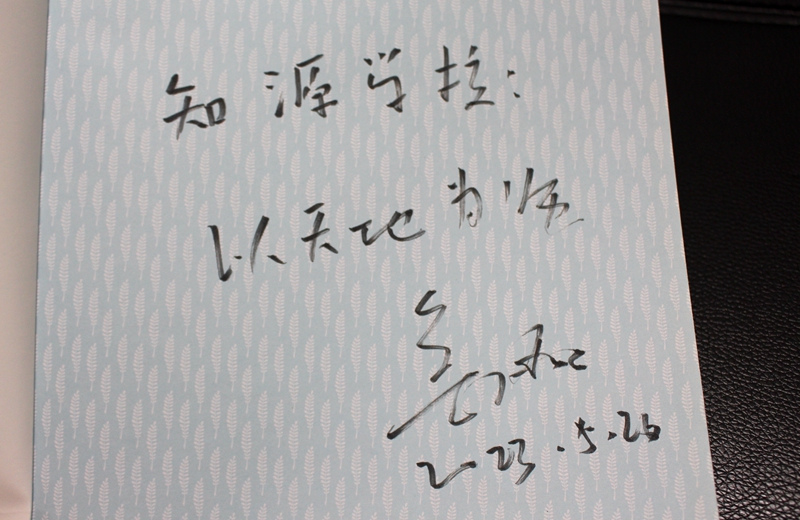 知源学校：
以天地为师
2023.5.26